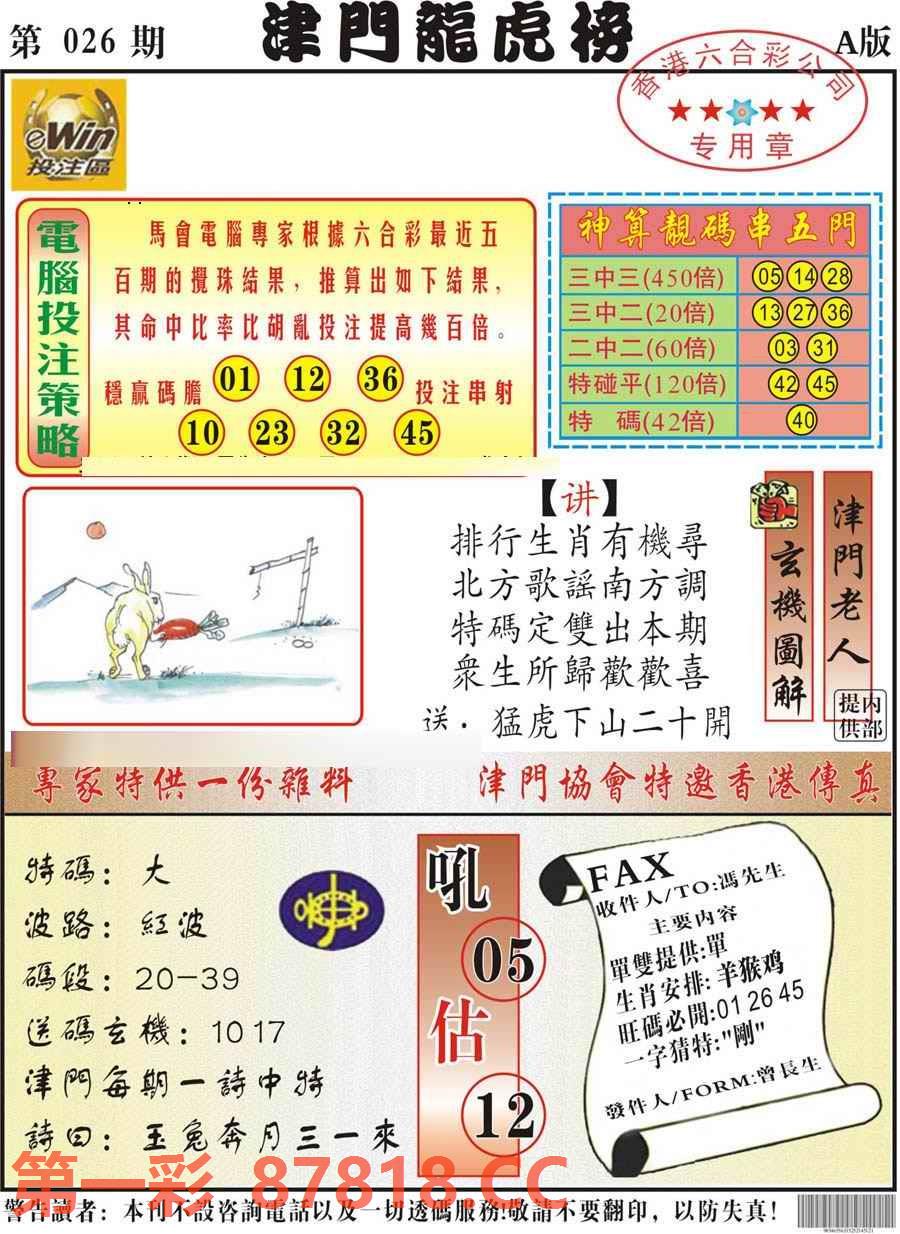 第 026 期
津門龍虎榜
A版
香港六合彩公司
专用章
eWin
投注區
電腦投注策略
馬會電腦專家根據六合彩最近五
百期的攪珠結果，推算出如下結果，
其命中比率比胡亂投注提高幾百倍。
穩贏碼膽 01 12 36 投注串射
10 23 32 45
神算靚碼串五門
三中三(450倍) 05 14 28
三中二(20倍) 13 27 36
二中二(60倍) 03 31
特碰平(120倍) 42 45
特 碼(42倍) 40
【讲】
排行生肖有機尋
北方歌謡南方調
特碼定雙出本期
衆生所歸歡歡喜
送·猛虎下山二十開
玄機圖解
津門老人
内部提供
專家特供一份雜料
津門協會特邀香港傳真
特碼：大
波路：紅波
碼段：20—39
送碼玄機：10 17
津門每期一詩中特
詩曰：玉兔奔月三一來
吼
05
估
12
FAX
收件人/TO:馮先生
主要内容
單雙提供:單
生肖安排:羊猴鸡
旺碼必開:01 26 45
一字猜特:"剛"
發件人/FORM:曾長生
第一彩 87818.CC
警告讀者：本刊不設咨詢電話以及一切透碼服務!敬請不要翻印，以防失真!